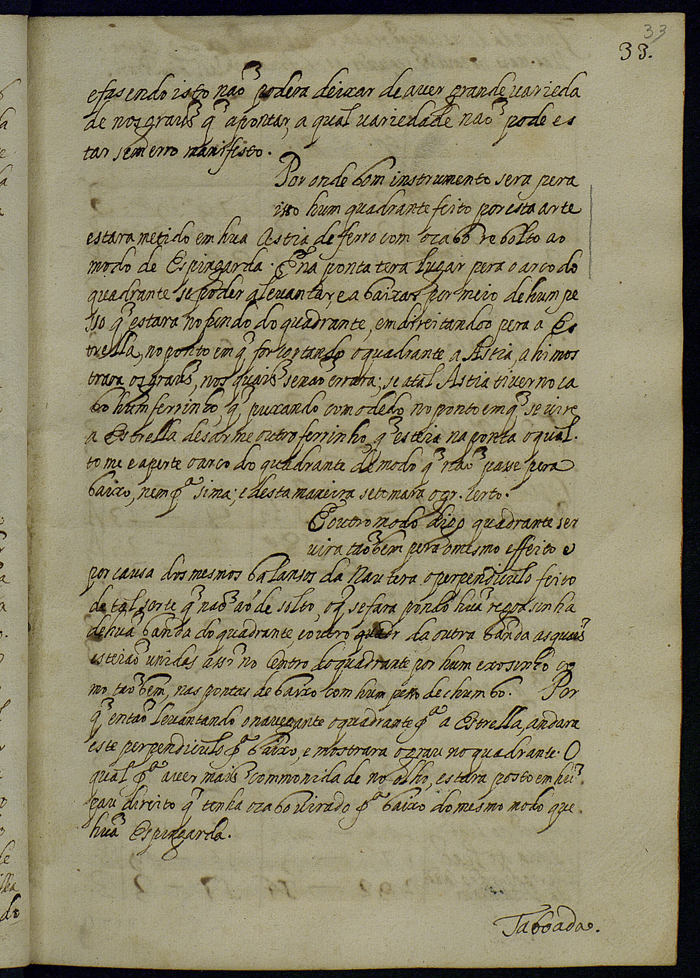 33
33.
efasendo isto naõ podera deixar de aver grande varieda
de nos graus q̃ apontar, a qual variedade naõ pode es
tar sem erro manifesto.
Por onde bom instrumento sera pera
isso hum quadrante feito por esta arte
estara metido em hua Astia de ferro com o cabo rebolto ao
modo de Espingarda. E na ponta tera lugar pera o arco do
quadrante se poder alevantar, e abaixar por meio de hum pe
sso q̃ estara no fundo do quadrante, emdireitandoo pera a Es
trella, no ponto em q̃ for cortando o quadrante a Astia, ahi mos
trara os graus, nos quais senaõ errara; se a tal Astia tiver no ca
bo hum ferrinho, q̃, puxando com o dedo no ponto em q̃ se vire
a Estrella desarme outro ferrinho, q̃ esteia na ponta o qual
tome e aperte o arco do quadrante de modo q̃ naõ passe pera
baixo, nem pª sima; e desta maneira se tomara o gr. certo.
E outro modo digo quadrante ser
vira taõ bem pera o mesmo effeito e
por causa dos mesmos balansos da Nau tera o perpendiculo feito
de tal sorte q̃ naõ ãde solto, o q̃ se fara pondo huã regoasinha
de huã banda do quadrante e outro quadr da outra banda as quais
esteiaõ unidas assi no centro do quadrante por hum eixosinho co
mo taõ bem, nas pontas de baixo com hum peso de chumbo. Por
q̃ entaõ levantando o navegante o quadrante pª a Estrella, andara
este perpendiculo pª baixo, e mostrara o grau no quadrante. O
qual pª aver mais commodidade no olho, estara posto em hũ
pau direito q̃ tenha o cabo virado pª baixo do mesmo modo que
huã Espingarda.
Taboada.